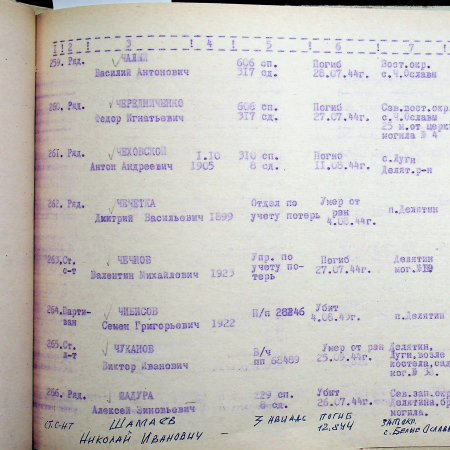 1 ! 2 ! 3 ! 4 ! 5 ! 6 ! 7 !
259. Ряд. ЧАЛЫЙ 606 сп. Погиб Вост.окр.
Василий Антонович 317 сд. 28.07.44г. с.Ч.Ославы
260. Ряд. ЧЕРЕДНИЧЕНКО 606 сп. Погиб Сев.вост.окр.
Федор Игнатьевич 317 сд. 27.07.44г. с.Ч.Ославы
25 м.от церкв
могила № 4
261. Ряд. ЧЕХОВСКОЙ 1.10 310 сп. Погиб с.Луги
Антон Андреевич 1905 8 сд. 11.08.44г. Делят.р-н
262. Ряд. ЧЕЧЕТКА Отдел по Умер от п.Делятин
Дмитрий Васильевич 1899 учету потерь ран
4.08.44г.
263. Ст. ЧЕЧНОВ Упр. по Погиб Делятин
с-т Валентин Михайлович 1923 учету по- 27.07.44г. мог.№
терь
264. Парти- ЧИБИСОВ П/п 28246 Убит
зан Семен Григорьевич 1922 4.08.43г. п.Делятин
265. Ст. ЧУКАНОВ В/ч Умер от ран Делятин,
л-т Виктор Иванович пп 68489 25.09.44г. Луги,возле
костела,сад
мог.№ 38.
266. Ряд. ШАДУРА 229 сп. Убит Сев.зап.окр.
Алексей Зиновьевич 8 сд. 26.07.44г. Делятина,бр
могила.
СТ.С-НТ ШАМАЕВ 3 АВИАДС ПОГИБ ЗАП.ОКР.
НИКОЛАЙ ИВАНОВИЧ – 12.8.44 с. БЕЛЫЕ ОСЛАВЫ